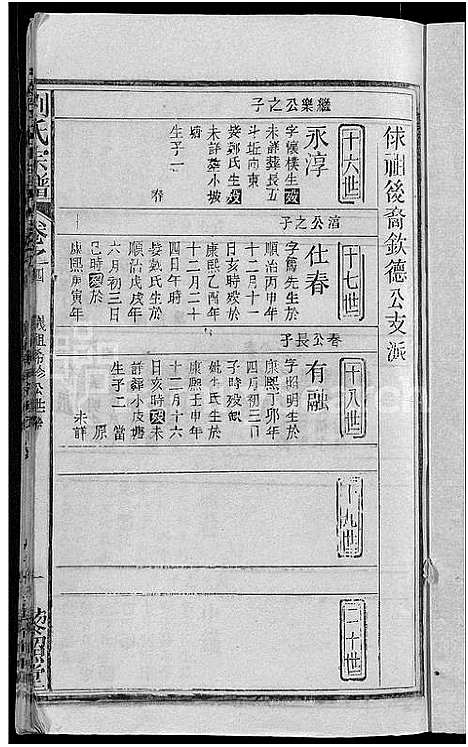 俅祖後裔欽德公支派
十六世
繼樂公之子
永淳
字懷樓生歿
未詳葬長五
斗坵向東
娶鄭氏生歿
未詳葬小坡
塘
生子一
春
十七世
淳公之子
仕春
字先生於
順治丙申年
十二月十一
日亥時歿於
康熙乙酉年
四月午時
十二月二十
娶戴氏生於
順治戊戌年
六月初三日
巳時歿於
康熙庚寅年
十八世
春公長子
有融
字昭明生於
康熙丁卯年
四月初三日
子時歿
姚氏生於
康熙壬申年
十二月十六
日亥時歿未
詳葬小皮塘
生子二
當
原
未詳
十九世
二十世
劉氏宗譜
卷之四
一
藜照堂